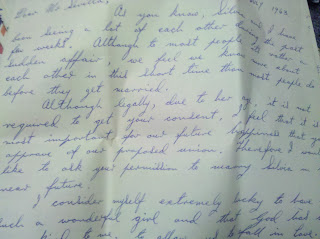 Dear Mr
As you know, and I have
been seeing a lot of each other during the past
weeks. Although to most people its rather a
sudden affair, we feel we know more about
each other in this short time than most people do
before they get married.
Although legally, due to her age, it is not
required to get your consent, I feel that it is
most important for our future happiness that you
approve of our proposed union. Therefore I would
like to ask your permission to marry in
near future.
I consider myself extremely lucky to have
such a wonderful girl and that God has
to me, to allow fall in love.